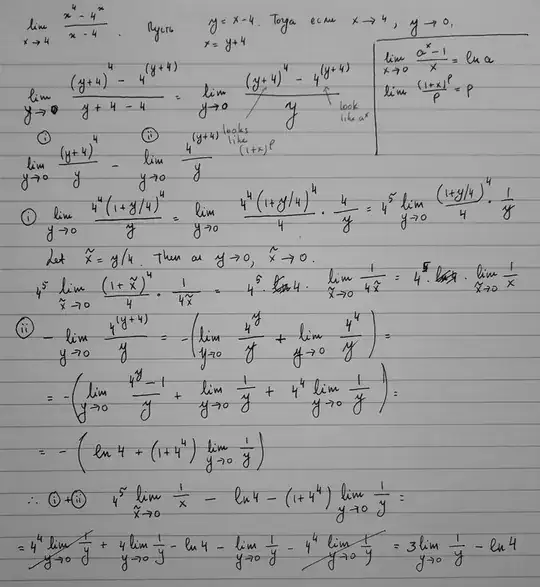 lim x→4 (x⁴ - 4ˣ)/(x - 4). Пусть y = x-4. Тогда если x → 4, y → 0.
x = y+4
lim x→0 (aˣ - 1)/x = ln a
lim (1+x)ᵖ/p = p
lim y→0 ((y+4)⁴ - 4^(y+4))/(y + 4 - 4) = lim y→0 ((y+4)⁴ - 4^(y+4))/y
looks like (1+x)ᵖ
look like aˣ
(i) lim y→0 (y+4)⁴/y - (ii) lim y→0 4^(y+4)/y
(i) lim y→0 4⁴(1+y/4)⁴/y = lim y→0 4⁴(1+y/4)⁴/4 · 4/y = 4⁵ lim y→0 (1+y/4)⁴/4 · 1/y
Let x̃ = y/4. Then as y→0, x̃ → 0.
4⁵ lim x̃→0 (1+x̃)⁴/4 · 1/4x̃ = 4⁵ · 4 · lim x̃→0 1/4x̃ = 4⁵ · lim x̃→0 1/x
(ii) - lim y→0 4^(y+4)/y = -(lim y→0 4ʸ/y + lim y→0 4⁴/y) =
= -(lim y→0 (4ʸ-1)/y + lim y→0 1/y + 4⁴ lim y→0 1/y) =
= - (ln 4 + (1+4⁴) lim y→0 1/y)
∴ (i)+(ii) 4⁵ lim x̃→0 1/x - ln4 - (1+4⁴) lim y→0 1/y =
= 4⁴ lim y→0 1/y + 4 lim y→0 1/y - ln 4 - lim y→0 1/y - 4⁴ lim y→0 1/y = 3 lim y→0 1/y - ln 4